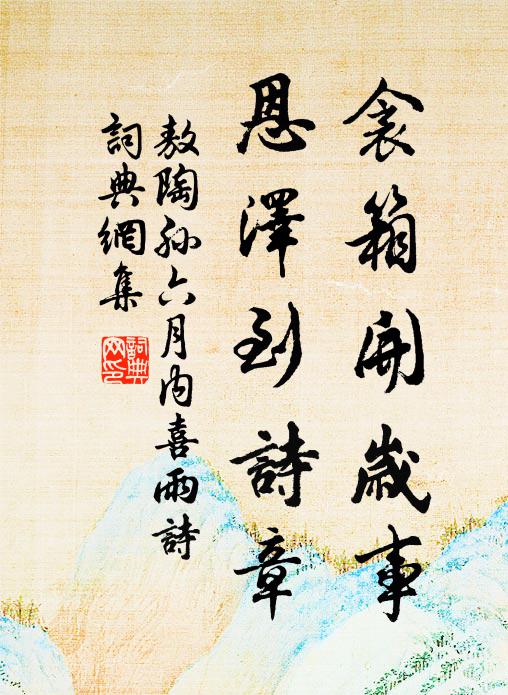 衾箱開歲事
恩澤到詩章
敖陶孫六月內喜雨詩
詞典網集
詞典
网印